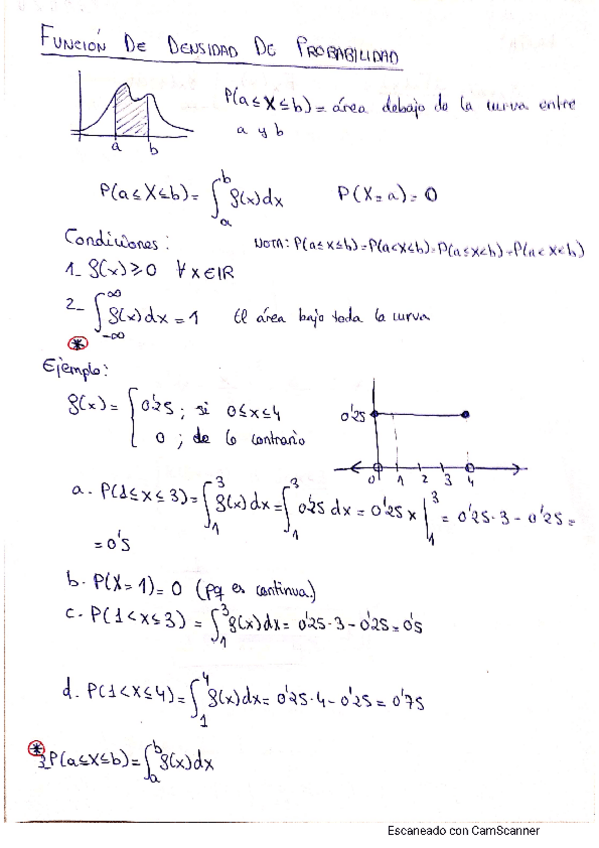 FUNCIÓN DE DENSIDAD DE PROBABILIDAD
P(a≤X≤b) = área debajo de la curva entre
a y b
a b
P(a≤X≤b) = ∫_a^b f(x)dx P(X=a) = 0
Condiciones:
NOTA: P(a≤x≤b)=P(a<x≤b)=P(a≤x<b)=P(a<x<b)
1_ f(x) ≥ 0 ∀x∈IR
2_ ∫_{-∞}^{∞} f(x)dx = 1 El área bajo toda la curva
*
Ejemplo:
f(x) = { 0'25 ; si 0≤x≤4
0 ; de lo contrario
0'25
0 1 2 3 4
a. P(1≤x≤3) = ∫_1^3 f(x)dx = ∫_1^3 0'25 dx = 0'25 x |_1^3 = 0'25·3 - 0'25 =
= 0'5
b. P(X=1) = 0 (pq es continua.)
c. P(1<x≤3) = ∫_1^3 f(x)dx = 0'25·3 - 0'25 = 0'5
d. P(1<x≤4) = ∫_1^4 f(x)dx = 0'25·4 - 0'25 = 0'75
*
3_ P(a≤X≤b) = ∫_a^b f(x)dx
Escaneado con CamScanner